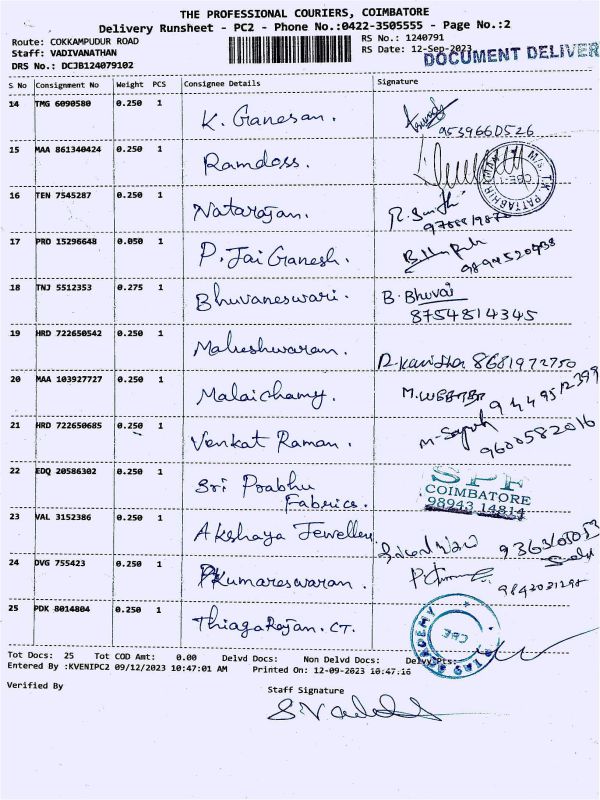 THE PROFESSIONAL COURIERS, COIMBATORE
Delivery Runsheet - PC2 - Phone No.:0422-3505555 - Page No.:2
Route: COKKAMPUDUR ROAD RS No.: 1240791
Staff: VADIVANATHAN RS Date: 12-Sep-2023 DOCUMENT DELIVER
DRS No.: DCJB124079102
S No Consignment No Weight PCS Consignee Details Signature
14 TMG 6090580 0.250 1 K. Ganesan.
9539660526
15 MAA 861340424 0.250 1 Ramdoss.
M/s. T.K. PATTABHIRAMAN CBE-1
16 TEN 7545287 0.250 1 Natarajan.
17 PRO 15296648 0.050 1 P. Jai Ganesh.
9894520938
18 TNJ 5512353 0.275 1 Bhuvaneswari. B. Bhuvai
8754814345
19 HRD 722650542 0.250 1 Maheshwaran. 8681972750
20 MAA 103927727 0.250 1 Malaichamy.
21 HRD 722650685 0.250 1 Venkat Raman.
9600582016
22 EDQ 20586302 0.250 1 Sri Prabhu Fabrics. SPF
COIMBATORE
98943 14814
23 VAL 3152386 0.250 1 Akshaya Jewellery
24 DVG 755423 0.250 1 Kumareswaran.
25 PDK 8014804 0.250 1 ThiagaRajan. CT.
IAS ACADEMY CBE
Tot Docs: 25 Tot COD Amt: 0.00 Delvd Docs: Non Delvd Docs: Delvy Pts:
Entered By :KVENIPC2 09/12/2023 10:47:01 AM Printed On: 12-09-2023 10:47:16
Verified By Staff Signature